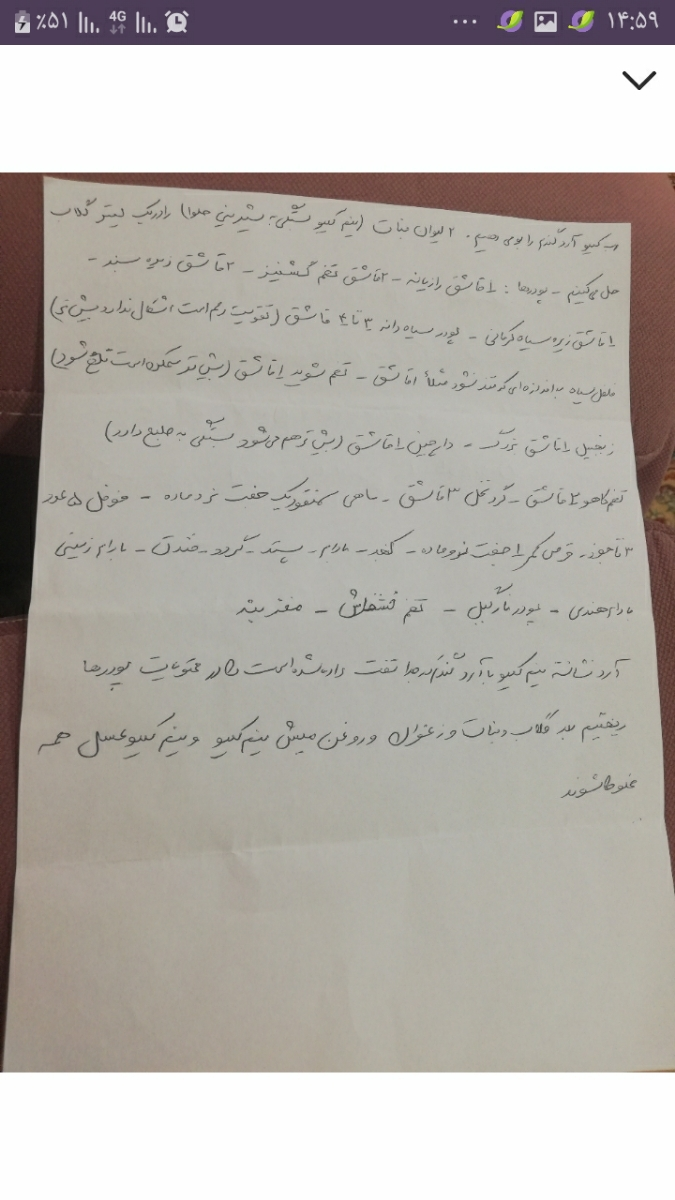 ٪۵۱ 4G ... ۱۴:۵۹
کیلو آرد گندم را بومی دهیم. ۲ لیوان نبات (نیم کیلو بستگی به شیرینی حلوا) را در یک لیتر گلاب
حل می کنیم - پودرها: ۱ قاشق رازیانه - ۲ قاشق تخم گشنیز - ۲ قاشق زیره سبز -
۱ قاشق زیره سیاه کرمانی - پودر سیاه دانه ۳ تا ۴ قاشق (تقویت رحم است اشکال ندارد بیش تر)
فلفل سیاه به اندازه ای که تند نشود مثلاً ۱ قاشق - تخم شوید ۱ قاشق (بیش تر ممکن است تلخ شود)
زنجبیل ۱ قاشق بزرگ - دارچین ۱ قاشق (بیش تر هم می شود بستگی به طبع دارد)
تخم کاهو ۲ قاشق - گرد نخل ۳ قاشق - ماهی سقنقور یک جفت نر و ماده - فوفل ۵ عدد
۳ تا جوز - قرص کمر ۱ جفت نر و ماده - کنجد - بادام - پسته - گردو - فندق - بادام زمینی
بادام هندی - پودر نارگیل - تخم خشخاش - مغز
آرد نشاسته نیم کیلو با آرد گندم جدا تفت داده شده است در محتویات پودرها
ریختیم بعد گلاب و نبات و زعفران و روغن میش نیم کیلو و نیم کیلو عسل همه
مخلوط شوند